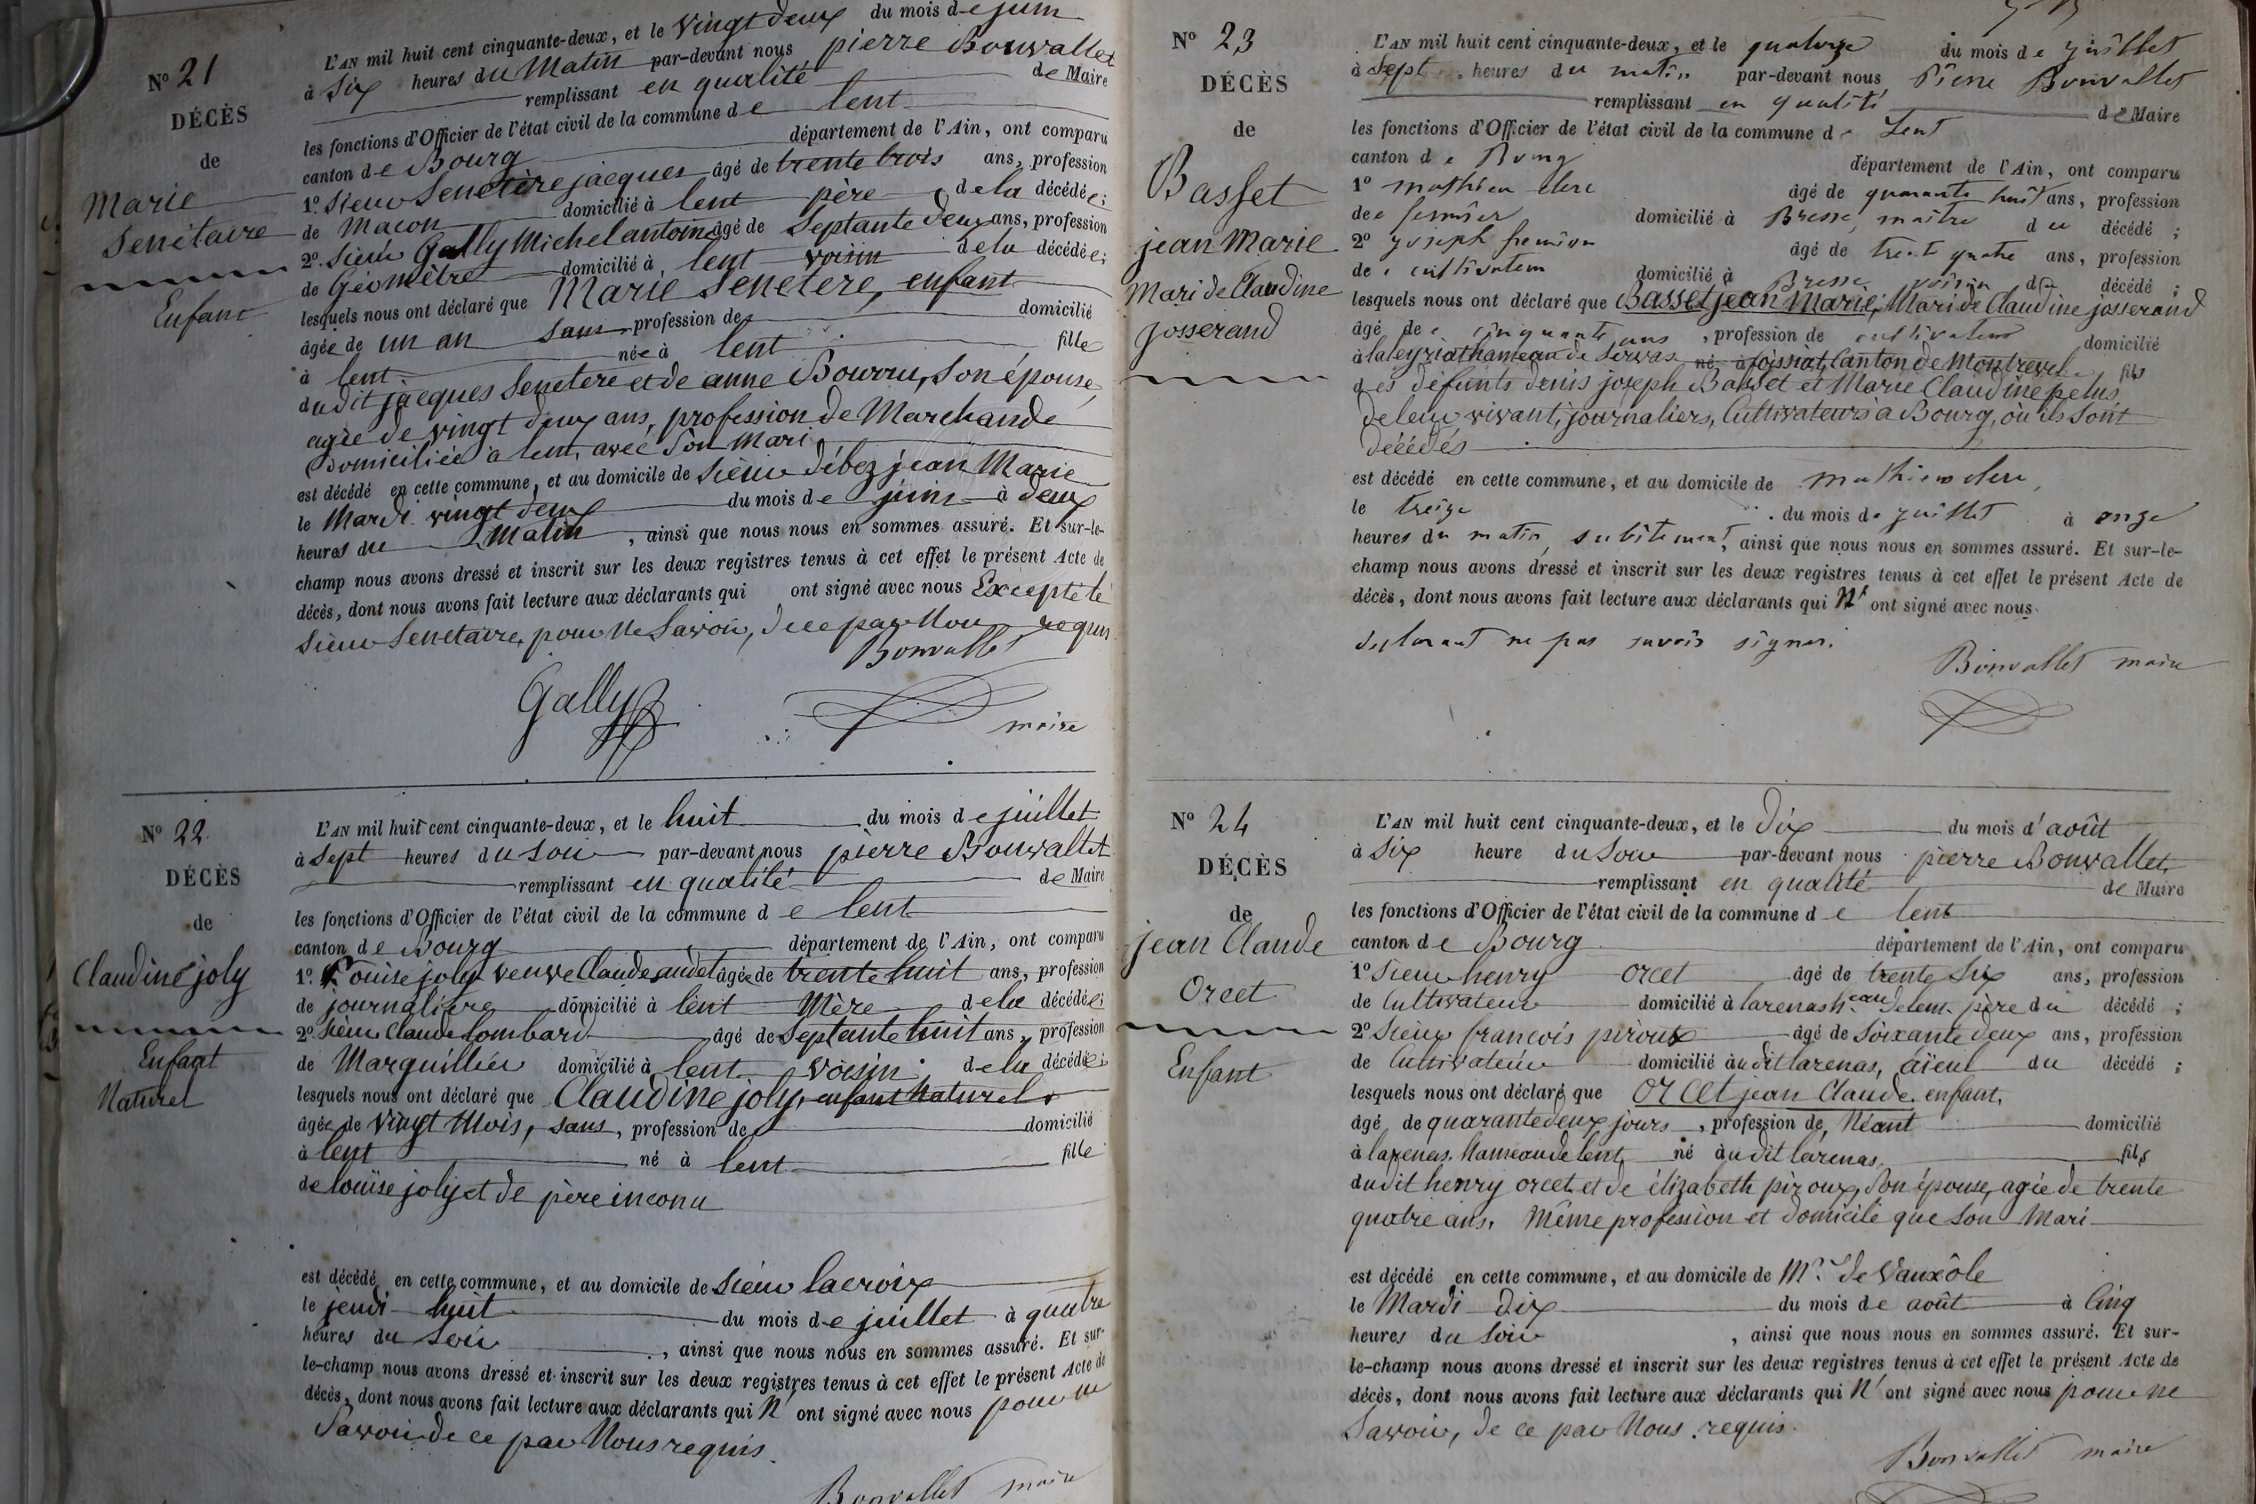 N° 21
DÉCÈS
de
Marie
Senétaire
Enfant
L'AN mil huit cent cinquante-deux, et le vingt deux du mois de juin
à Six heures du Matin par-devant nous pierre Bonvallet
remplissant en qualité de Maire
les fonctions d'Officier de l'état civil de la commune de lent
canton de Bourg département de l'Ain, ont comparu
1° Sieur Senetère jacques âgé de trente trois ans, profession
de Macon domicilié à lent père de la décédée;
2° Sieur Gally Michel antoine âgé de Septante deux ans, profession
de Géomètre domicilié à lent voisin de la décédée;
lesquels nous ont déclaré que Marie Senetere, enfant
âgée de un an sans profession de domicilié
à lent née à lent fille
dudit jacques Senetere et de anne Bourru, Son épouse,
agée de vingt deux ans, profession de Marchande
Domiciliée a lent, avec Son Mari
est décédé en cette commune, et au domicile de Sieur débez jean Marie
le Mardi vingt deux du mois de juin à deux
heures du Matin, ainsi que nous nous en sommes assuré. Et sur-le-
champ nous avons dressé et inscrit sur les deux registres tenus à cet effet le présent Acte de
décès, dont nous avons fait lecture aux déclarants qui ont signé avec nous Excepté le
Sieur Senetaire, pour ne Savoir, de ce par Nous requis
Bonvallet
Gally
maire
N° 22
DÉCÈS
de
Claudine joly
Enfant
Naturel
L'AN mil huit cent cinquante-deux, et le huit du mois de juillet
à Sept heures du Soir par-devant nous pierre Bonvallet
remplissant en qualité de Maire
les fonctions d'Officier de l'état civil de la commune de lent
canton de Bourg département de l'Ain, ont comparu
1° Louise joly veuve Claude audet âgée de trente huit ans, profession
de journalière domicilié à lent Mère de la décédée;
2° Sieur Claude lombard âgé de Septante huit ans, profession
de Marguillier domicilié à lent voisin de la décédée;
lesquels nous ont déclaré que Claudine joly, enfant Naturel
âgée de vingt Mois, sans, profession de domicilié
à lent né à lent fille
de louïse joly et de père inconu
est décédé en cette commune, et au domicile de Sieur lacroix
le jeudi huit du mois de juillet à quatre
heures du Soir, ainsi que nous nous en sommes assuré. Et sur-
le-champ nous avons dressé et inscrit sur les deux registres tenus à cet effet le présent Acte de
décès, dont nous avons fait lecture aux déclarants qui N' ont signé avec nous pour ne
Savoir de ce par Nous requis.
Bonvallet maire
N° 23
DÉCÈS
de
Basset
jean Marie
Mari de Claudine
josserand
L'AN mil huit cent cinquante-deux, et le quatorze du mois de juillet
à Sept heures du matin par-devant nous Pierre Bonvallet
remplissant en qualité de Maire
les fonctions d'Officier de l'état civil de la commune de Lent
canton de Bourg département de l'Ain, ont comparu
1° mathieu clerc âgé de quarante huit ans, profession
de fermier domicilié à Bresse, maître du décédé;
2° joseph âgé de trente quatre ans, profession
de cultivateur domicilié à Bresse voisin du décédé;
lesquels nous ont déclaré que Basset jean Marie, Mari de Claudine josserand
âgé de cinquante ans, profession de cultivateur domicilié
à hameau de Servas né à foissiat, Canton de Montrevel fils
des défunts denis joseph Basset et Marie Claudine pelus,
de leur vivant, journaliers, Cultivateurs à Bourg, où ils Sont
décédés
est décédé en cette commune, et au domicile de mathieu clerc,
le treize du mois de juillet à onze
heures du matin, subitement, ainsi que nous nous en sommes assuré. Et sur-le-
champ nous avons dressé et inscrit sur les deux registres tenus à cet effet le présent Acte de
décès, dont nous avons fait lecture aux déclarants qui N' ont signé avec nous.
declarant ne pas savoir signer.
Bonvallet maire
N° 24
DÉCÈS
de
jean Claude
Orcet
Enfant
L'AN mil huit cent cinquante-deux, et le dix du mois d'août
à Six heure du Soir par-devant nous pierre Bonvallet
remplissant en qualité de Maire
les fonctions d'Officier de l'état civil de la commune de lent
canton de Bourg département de l'Ain, ont comparu
1° Sieur henry orcet âgé de trente Six ans, profession
de Cultivateur domicilié à larenas h.eau de lent père du décédé;
2° Sieur francois piroux âgé de Soixante deux ans, profession
de Cultivateur domicilié audit larenas, aïeul du décédé;
lesquels nous ont déclaré que orcet jean Claude, enfant,
âgé de quarante deux jours, profession de Néant domicilié
à larenas, hameau de lent né audit larenas, fils
dudit henry orcet et de élizabeth piroux, Son épouse, agée de trente
quatre ans, Même profession et domicile que Son Mari
est décédé en cette commune, et au domicile de Mr. de Vauxôle
le Mardi dix du mois de août à Cinq
heures du Soir, ainsi que nous nous en sommes assuré. Et sur-
le-champ nous avons dressé et inscrit sur les deux registres tenus à cet effet le présent Acte de
décès, dont nous avons fait lecture aux déclarants qui N' ont signé avec nous pour ne
Savoir, de ce par Nous requis.
Bonvallet maire